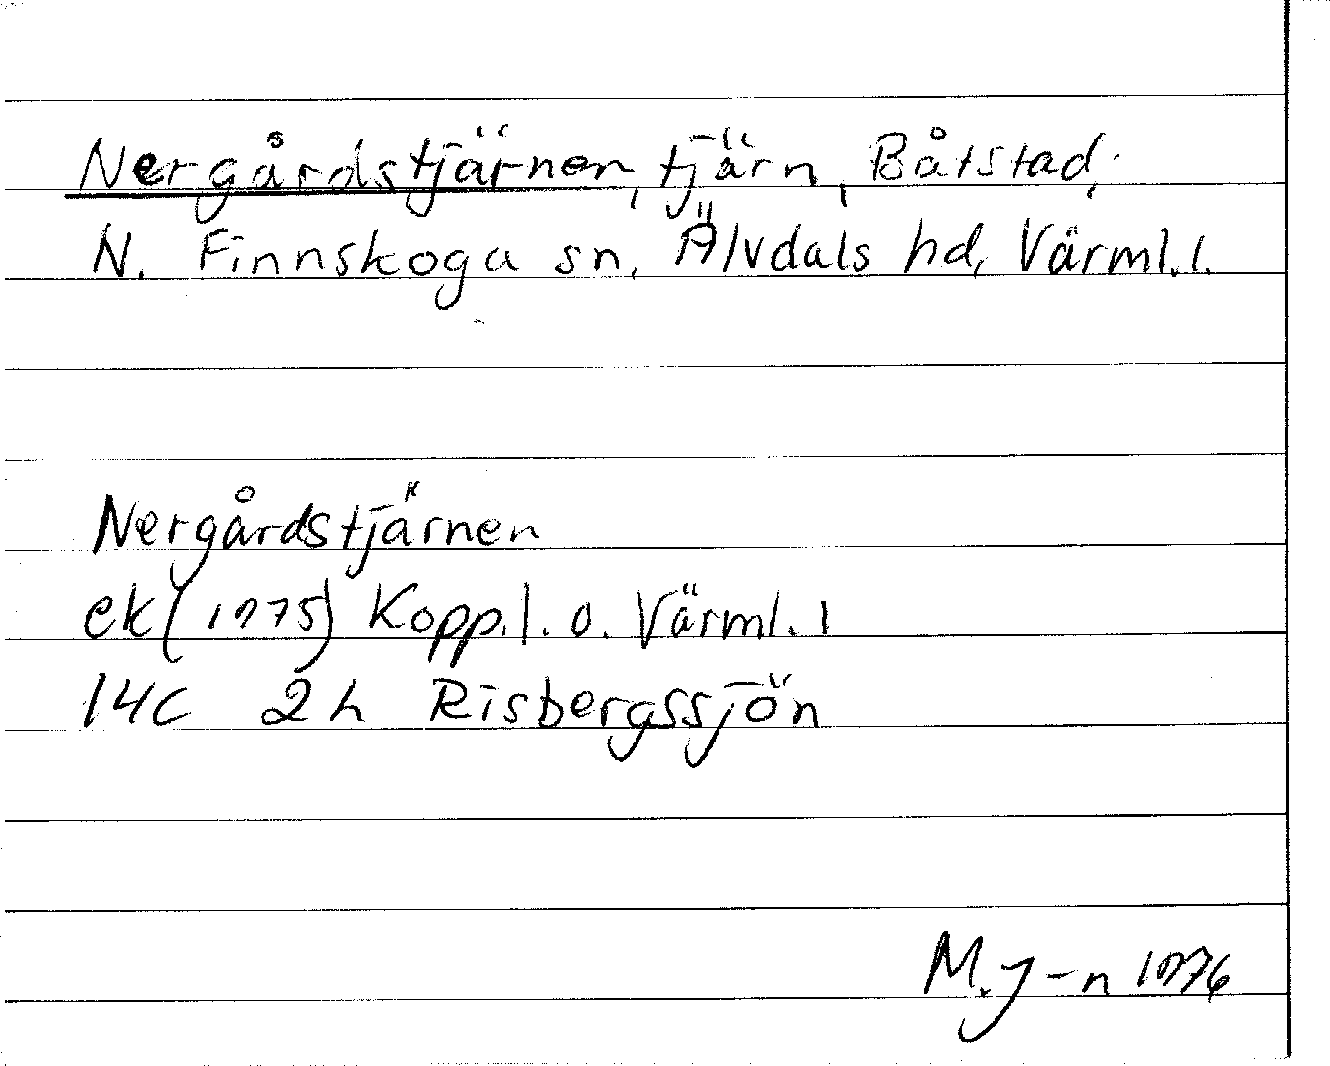 Nergårdstjärnen, tjärn, Båtstad,
N. Finnskoga sn, Älvdals hd, Värml.l.
Nergårdstjärnen
ek (1975) Kopp.l. o. Värml. l
14C 2h Risbergssjön
M.J-n 1976